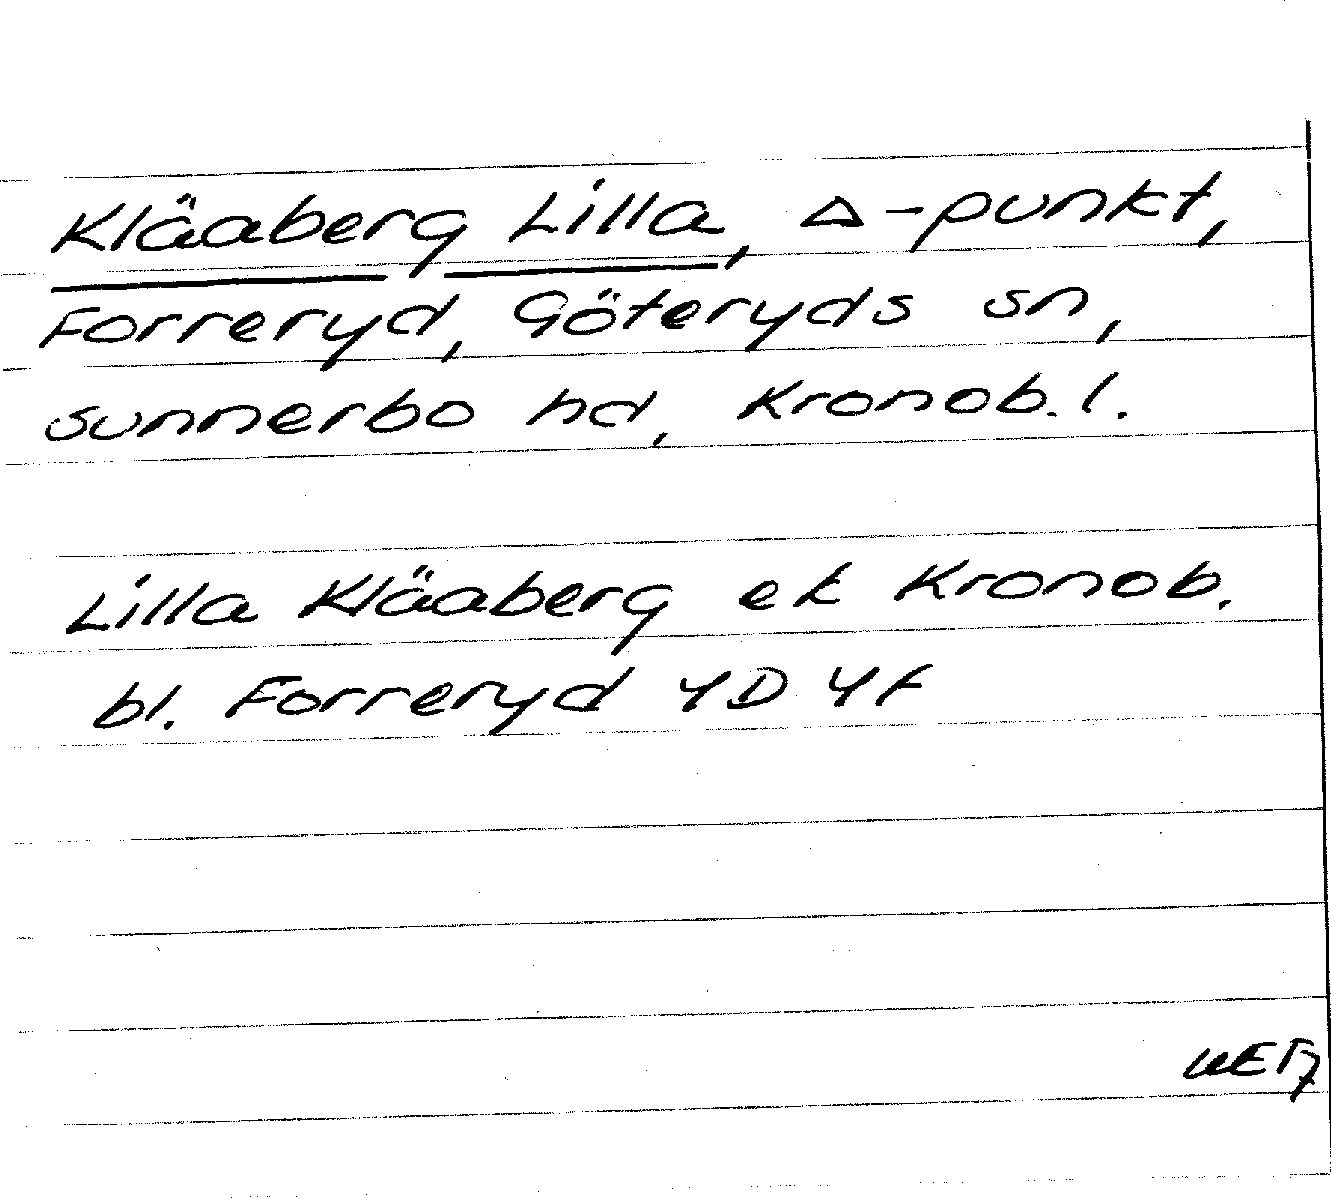 Kläaberg Lilla, Δ-punkt,
Forreryd, Göteryds sn,
Sunnerbo hd, Kronob. l.
Lilla Kläaberg ek Kronob.
bl. Forreryd 4D 4f